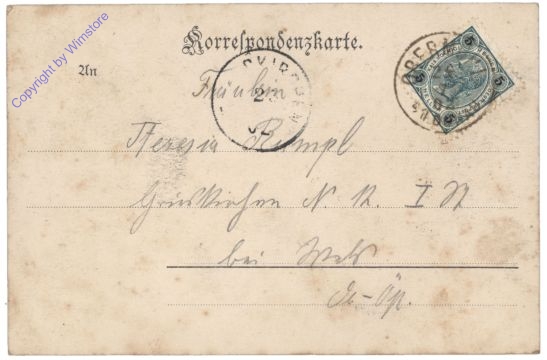 Copyright by Wimstore
Korrespondenzkarte.
An
Fräulein
Theresia Rumpl
Grieskirchen N. 12 I St
bei Wels
Ob-Öst.
5 5 5 5